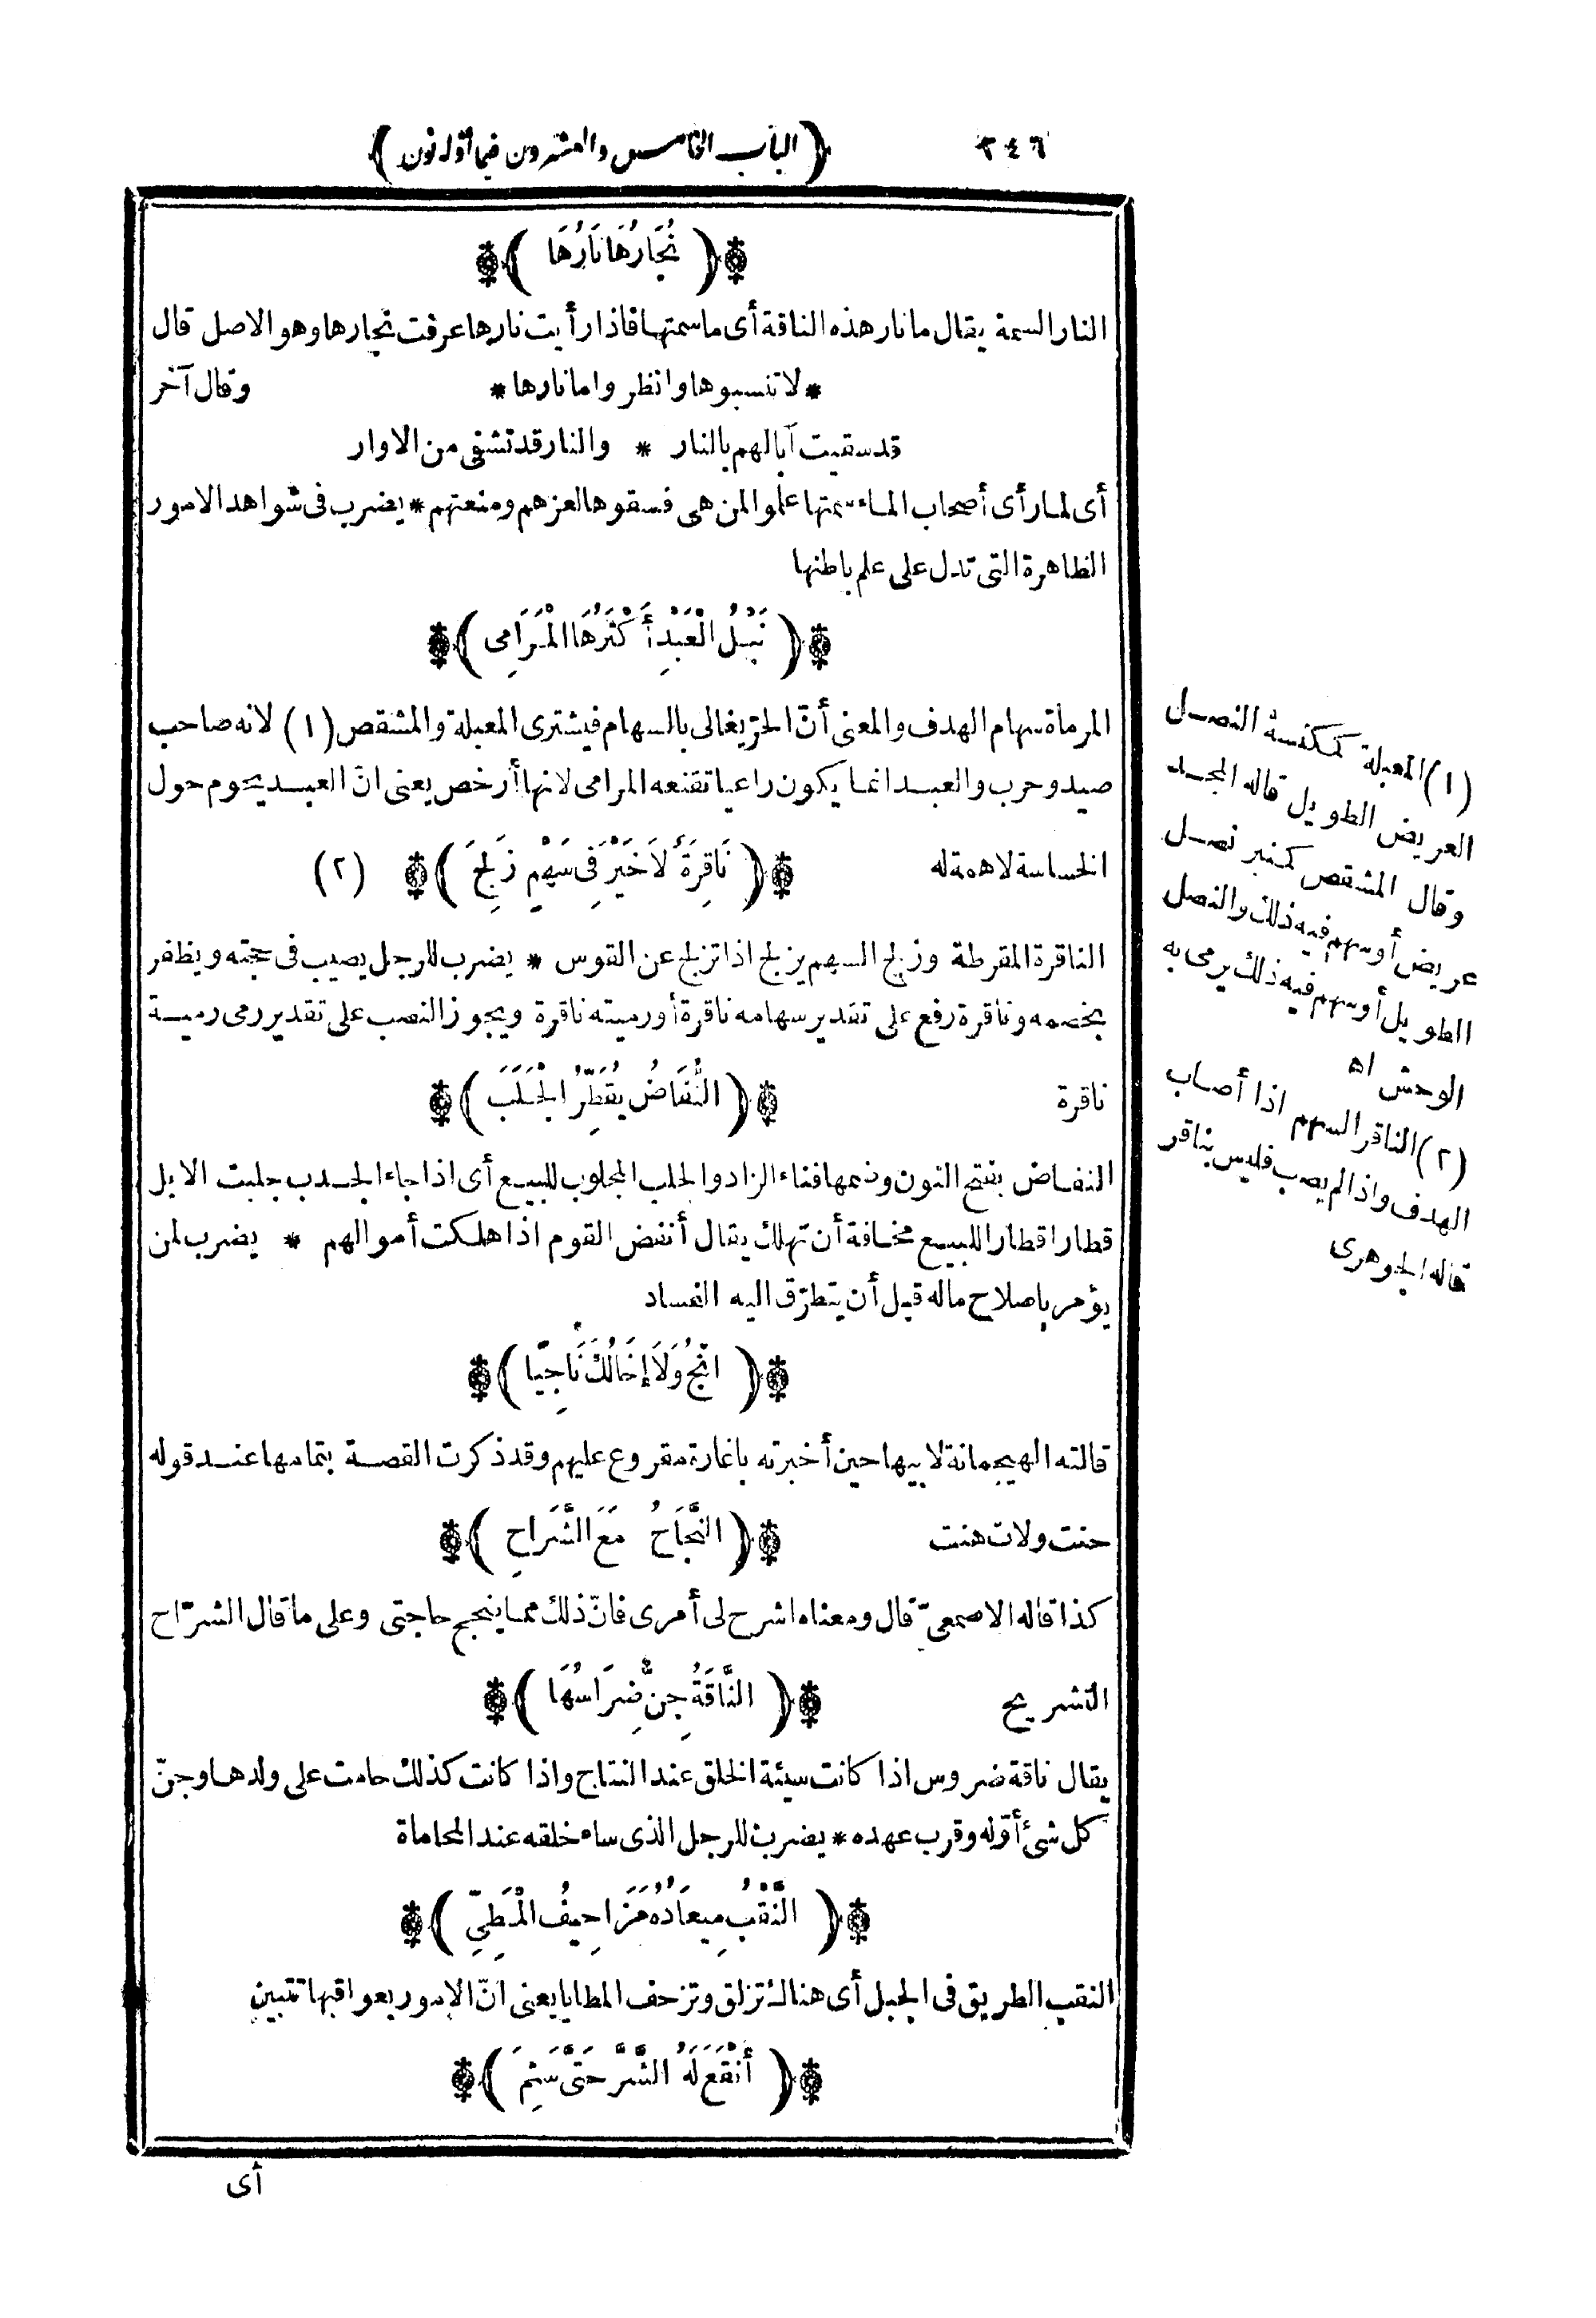 ٢٤٦
﴿الباب الخامس والعشرون فيما أوله نون﴾
﴿نُجَارُهَا نَارُهَا﴾
النار السمة يقال ما نار هذه الناقة أى ما سمتها فاذا رأيت نارها عرفت نجارها وهو الاصل قال
* لا تنسبوها وانظروا ما نارها * وقال آخر
قد سقيت آبالهم بالنار * والنار قد تشفى من الاوار
أى لما رأى أصحاب الماء سمتها علموا لمن هى فسقوها لعزهم ومنعتهم * يضرب فى شواهد الامور
الظاهرة التى تدل على علم باطنها
﴿نَبْلُ الْعَبْدِ أَكْثَرُهَا الْمَرَامِى﴾
المرماة سهام الهدف والمعنى أنّ الحرّ يغالى بالسهام فيشترى المعبلة والمشقص (١) لانه صاحب
صيد وحرب والعبد انما يكون راعيا تقنعه المرامى لانها أرخص يعنى انّ العبد يحوم حول
الخساسة لا همة له ﴿نَاقِرَةٌ لَا خَيْرَ فِى سَهْمٍ زَلَجَ﴾ (٢)
الناقرة المقرطة وزلج السهم يزلج اذا تزلج عن القوس * يضرب للرجل يصيب فى حجته ويظفر
بخصمه وناقرة رفع على تقدير سهامه ناقرة أو رميته ناقرة ويجوز النصب على تقدير رمى رمية
ناقرة ﴿النُّفَاضُ يُقَطِّرُ الْجَلَبَ﴾
النفاض بفتح النون وضمها فناء الزاد والجلب المجلوب للبيع أى اذا جاء الجدب جلبت الابل
قطارا قطارا للبيع مخافة أن تهلك يقال أنفض القوم اذا هلكت أموالهم * يضرب لمن
يؤمر باصلاح ماله قبل أن يتطرّق اليه الفساد
﴿انْجُ وَلَا إِخَالُكَ نَاجِيًا﴾
قالته الهيجمانة لابيها حين أخبرته باغارة مقروع عليهم وقد ذكرت القصة بتمامها عند قوله
حنت ولات هنت ﴿النَّجَاحُ مَعَ الشَّرَاحِ﴾
كذا قاله الاصمعىّ قال ومعناه اشرح لى أمرى فانّ ذلك مما ينجح حاجتى وعلى ما قال الشرّاح
التشريح ﴿النَّاقَةُ جِنٌّ ضِرَاسُهَا﴾
يقال ناقة ضروس اذا كانت سيئة الخلق عند النتاج واذا كانت كذلك حامت على ولدها وجنّ
كل شئ أوّله وقرب عهده * يضرب للرجل الذى ساء خلقه عند المحاماة
﴿النَّقْبُ مِيعَادُهُ مَزَاحِيفُ الْمَطِىِّ﴾
النقب الطريق فى الجبل أى هنالك تزلق وتزحف المطايا يعنى انّ الامور بعواقبها تتبين
﴿أَنْقَعَ لَهُ الشَّرَّ حَتَّى سَئِمَ﴾
أى
(١) المعبلة كمكنسة النصل
العريض الطويل قاله المجد
وقال المشقص كمنبر نصل
عريض أو سهم فيه ذلك والنصل
الطويل أو سهم فيه ذلك يرمى به
الوحش اه
(٢) الناقر السهم اذا أصاب
الهدف واذا لم يصب فليس بناقر
قاله الجوهرى